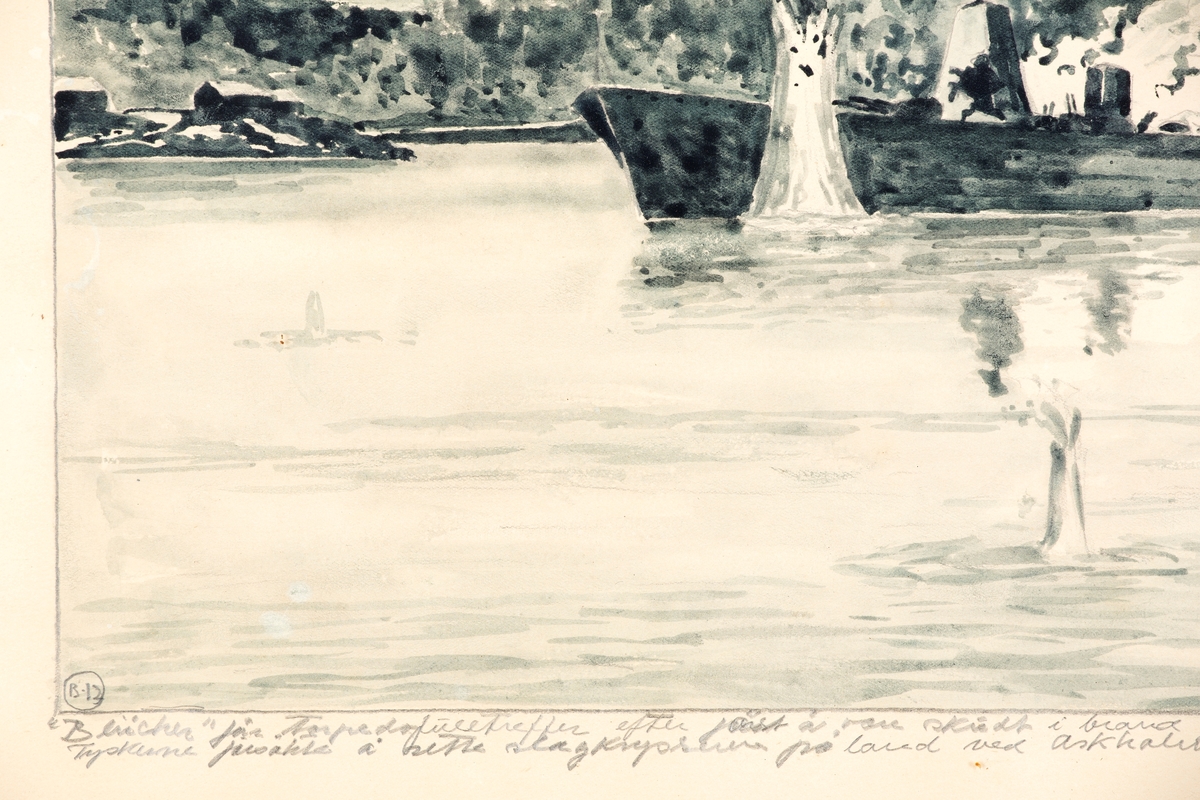 B-12
"Blücher" får Torpedofulltreffer efter først å være skudt i brand
Tyskerne forsøkte å sette slagkrysseren på land ved Askholm